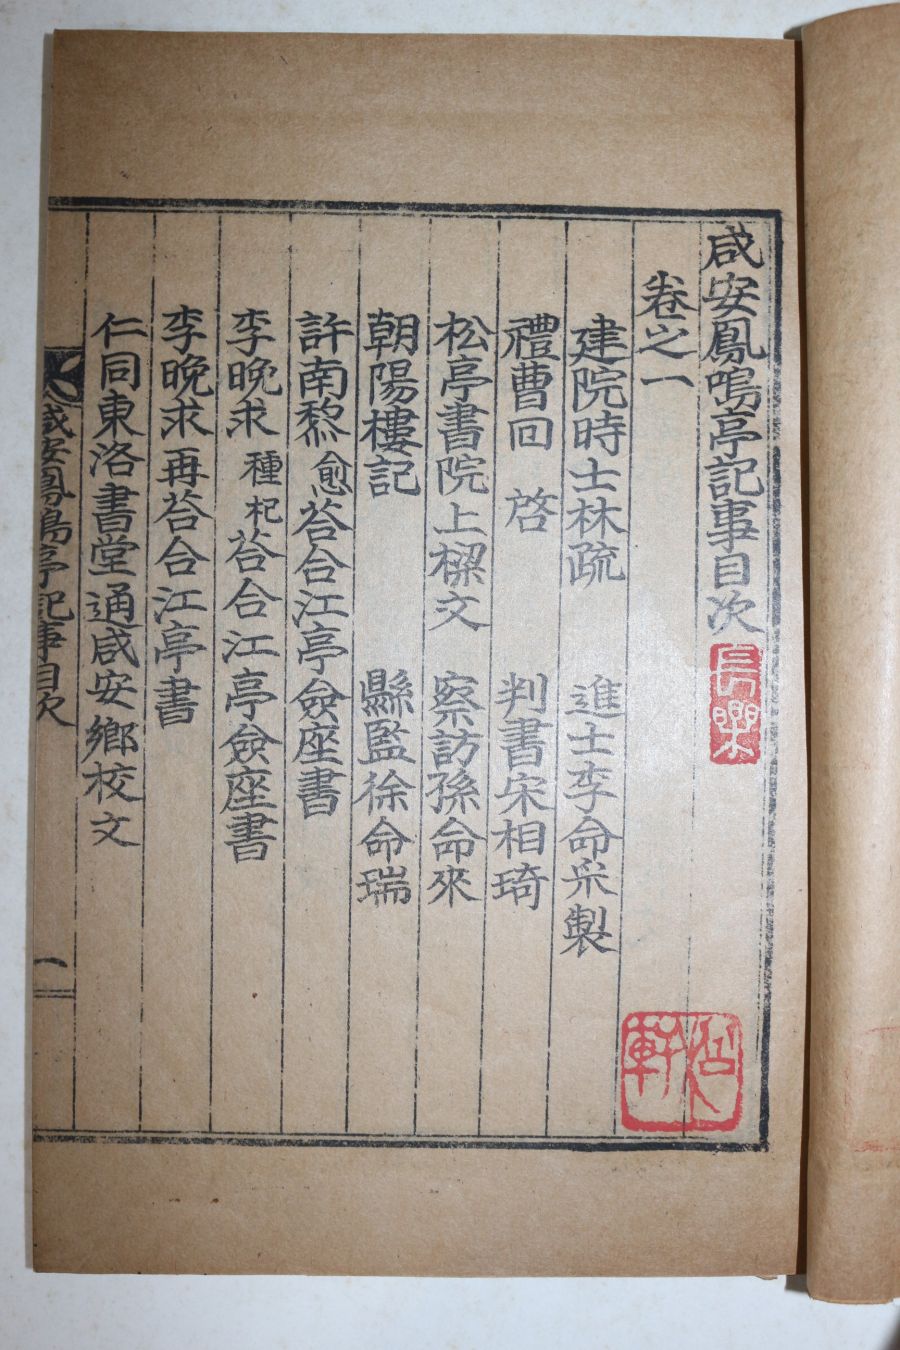 咸安鳳鳴亭記事目次
卷之一
建院時士林疏 進士李命采製
禮曹回啓 判書宋相琦
松亭書院上樑文 察訪孫命來
朝陽樓記 縣監徐命瑞
許南黎愈荅合江亭僉座書
李晩求種杞荅合江亭僉座書
李晩求再荅合江亭書
仁同東洛書堂通咸安鄉校文
咸安鳳鳴亭記事目次 一
長樂
軒